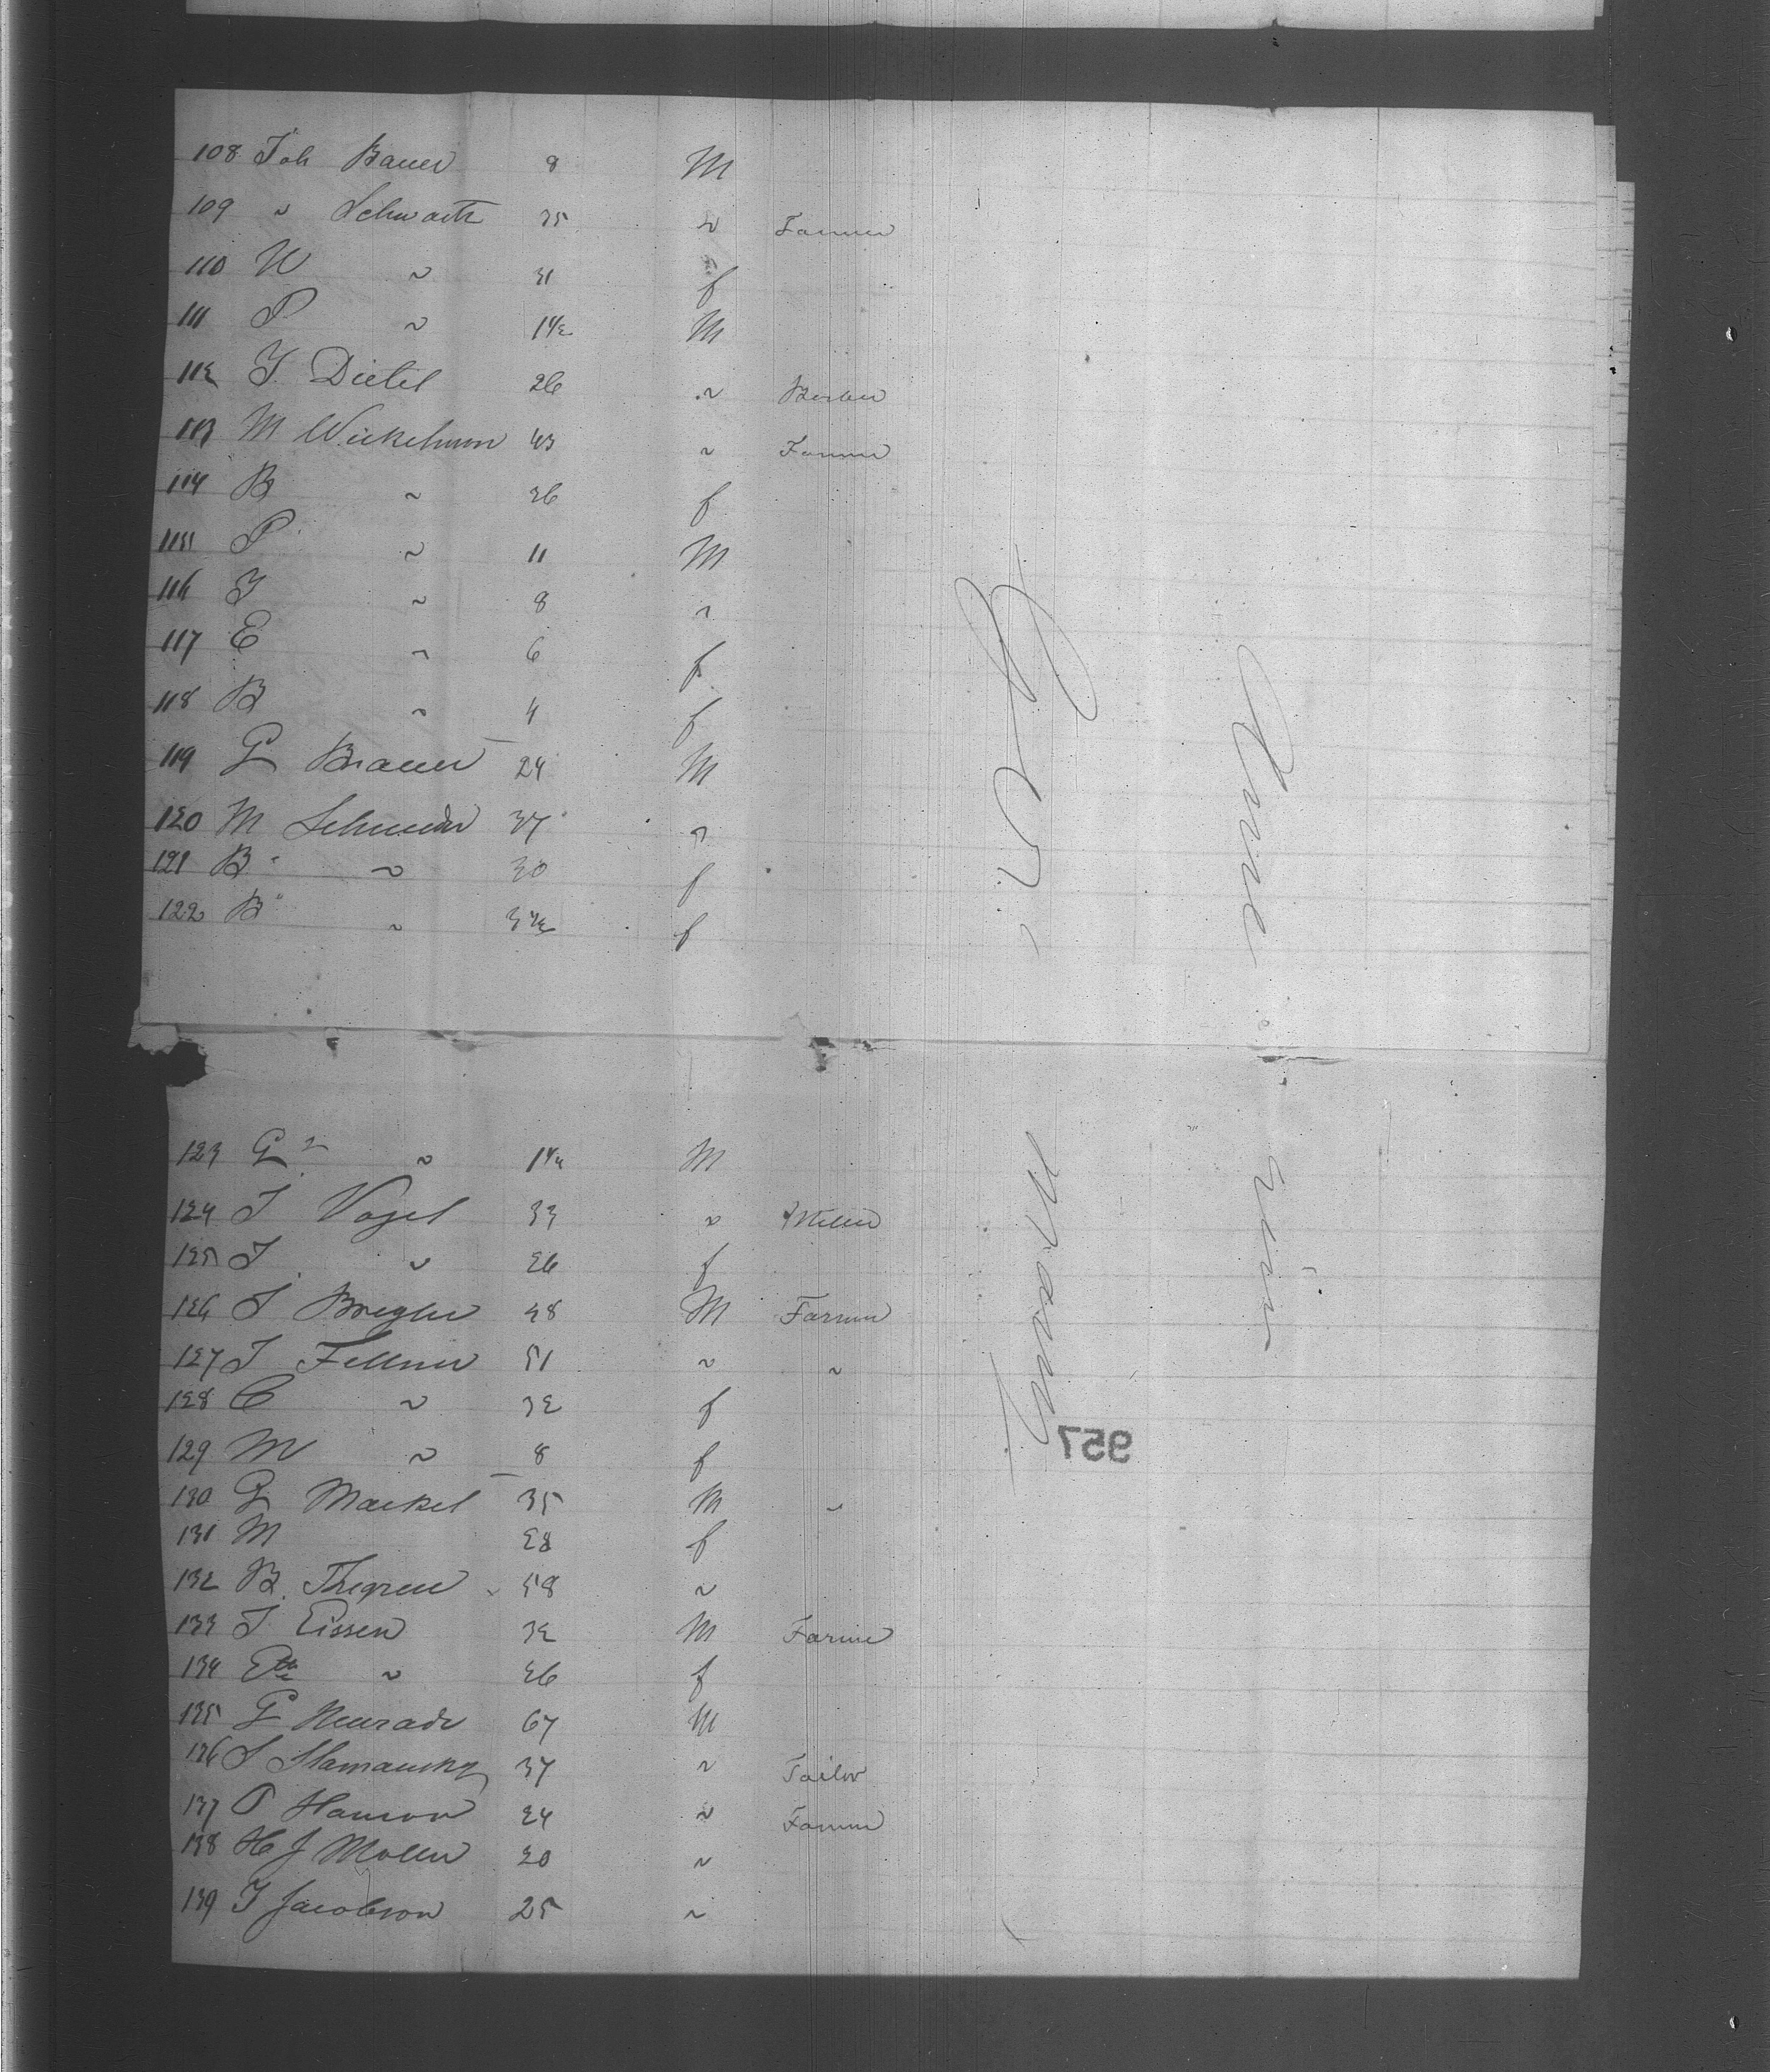 108 Joh Bauer 8 M
109 " Schwartz 35 " Farmer
110 W " 31 f
111 P " 1 1/2 M
112 J. Dietel 26 " Barber
113 M Wickelmon 43 " Farmer
114 B " 36 f
115 P " 11 M
116 J " 8 "
117 E " 6 f
118 B " 4 f
119 G Brauer 24 M
120 M Schneider 37 "
121 B " 30 f
122 B " 3 1/2 f
Germany
America
123 G " 1 1/4 M
124 J Vogel 33 " Miller
125 J. " 26 f
126 J Bregler 48 M Farmer
127 J Fellner 51 " "
128 C " 32 f
129 M " 8 f
957
130 G Maekel 35 M "
131 M 28 f
132 B. 58 "
133 J. Eissen 32 M Farmer
134 Eth " 26 f
135 G Neurade 67 M
136 S 37 " Tailor
137 P Hanson 24 " Farmer
138 H J Moller 20 "
139 J Jacobson 25 "